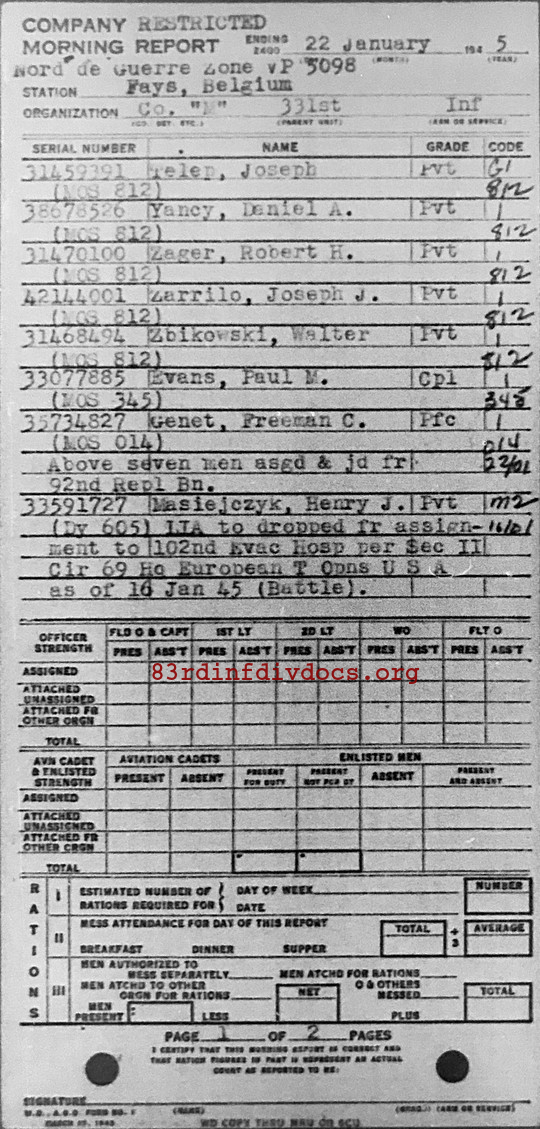 COMPANY RESTRICTED
MORNING REPORT ENDING 2400 22 January 194 5
(MONTH) (YEAR)
Nord de Guerre Zone VP 5098
STATION Fays, Belgium
ORGANIZATION Co. "M" 331st Inf
(CO. DET. ETC.) (PARENT UNIT) (ARM OR SERVICE)
SERIAL NUMBER NAME GRADE CODE
31459391 Telep, Joseph Pvt G1
(MOS 812) 812
38678526 Yancy, Daniel A. Pvt 1
(MOS 812) 812
31470100 Zager, Robert H. Pvt 1
(MOS 812) 812
42144001 Zarrilo, Joseph J. Pvt 1
(MOS 812) 812
31468494 Zbikowski, Walter Pvt 1
(MOS 812) 812
33077885 Evans, Paul M. Cpl 1
(MOS 345) 345
35734827 Genet, Freeman C. Pfc 1
(MOS 014) 014
Above seven men asgd & jd fr 22/01
92nd Repl Bn.
33591727 Masiejczyk, Henry J. Pvt M2
(Dy 605) LIA to dropped fr assign- 16/01
ment to 102nd Evac Hosp per Sec II
Cir 69 Hq European T Opns U S A
as of 16 Jan 45 (Battle).
OFFICER STRENGTH FLD O & CAPT 1ST LT 2D LT WO FLT O
PRES ABS'T PRES ABS'T PRES ABS'T PRES ABS'T PRES ABS'T
ASSIGNED
83rdinfdivdocs.org
ATTACHED UNASSIGNED
ATTACHED FR OTHER ORGN
TOTAL
AVN CADET & ENLISTED STRENGTH AVIATION CADETS ENLISTED MEN
PRESENT ABSENT PRESENT FOR DUTY PRESENT NOT FOR DY ABSENT PRESENT AND ABSENT
ASSIGNED
ATTACHED UNASSIGNED
ATTACHED FR OTHER ORGN
TOTAL
RATIONS
I ESTIMATED NUMBER OF RATIONS REQUIRED FOR DAY OF WEEK DATE NUMBER
II MESS ATTENDANCE FOR DAY OF THIS REPORT TOTAL ÷ 3 AVERAGE
BREAKFAST DINNER SUPPER
III MEN AUTHORIZED TO MESS SEPARATELY MEN ATCHD FOR RATIONS
MEN ATCHD TO OTHER ORGN FOR RATIONS NET O & OTHERS MESSED TOTAL
MEN PRESENT LESS PLUS
PAGE 1 OF 2 PAGES
I CERTIFY THAT THIS MORNING REPORT IS CORRECT AND
THAT RATION FIGURES IN PART III REPRESENT AN ACTUAL
COUNT AS REPORTED TO ME:
SIGNATURE
W.D., A.G.O. FORM NO. 1 (NAME) (GRADE) (ARM OR SERVICE)
MARCH 1943
WD COPY THRU MRU OR SCU